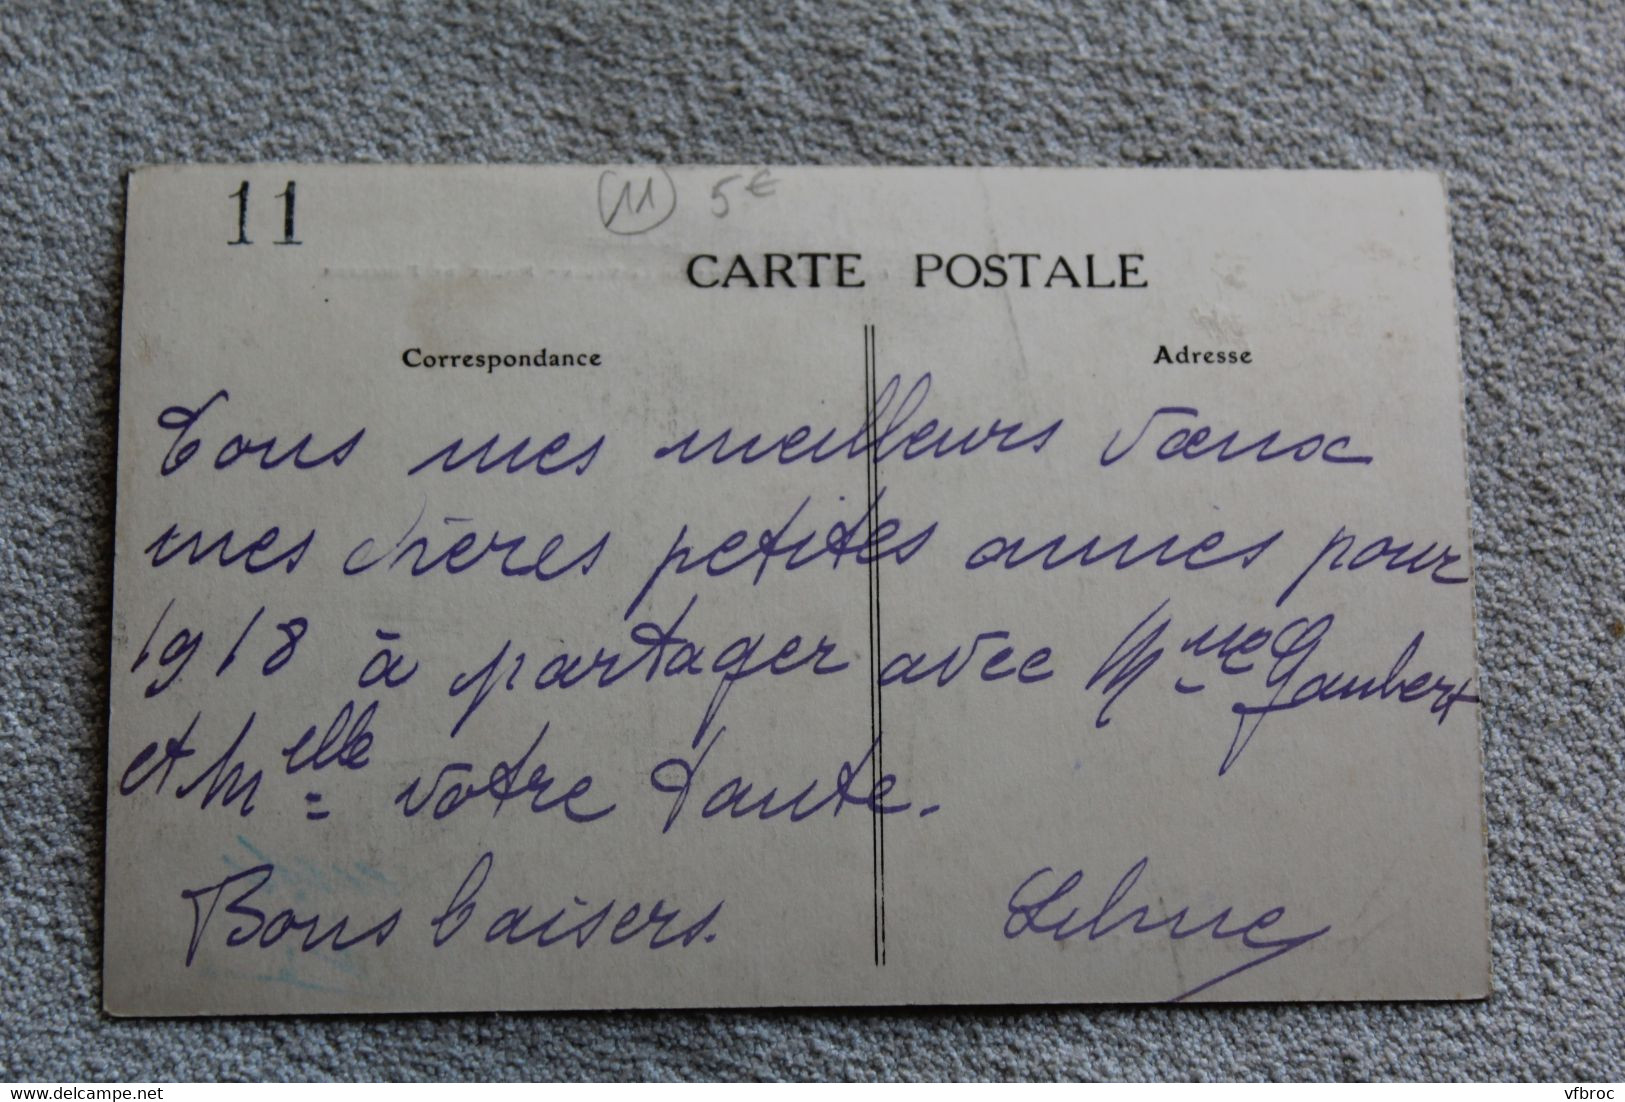 11
(11) 5€
CARTE POSTALE
Correspondance
Adresse
Tous mes meilleurs vœux
mes chères petites amies pour
1918 à partager avec Mme Gaubert
et Melle votre tante.
Bons baisers.
delcampe.net
vfbroc